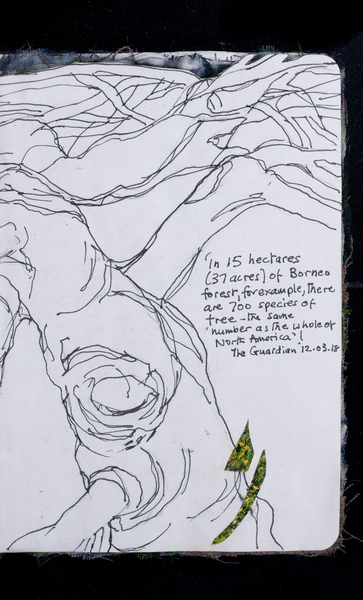 'In 15 hectares
(37 acres) of Borneo
forest, for example, there
are 700 species of
tree - the same
number as the whole of
North America'!
The Guardian 12.03.18